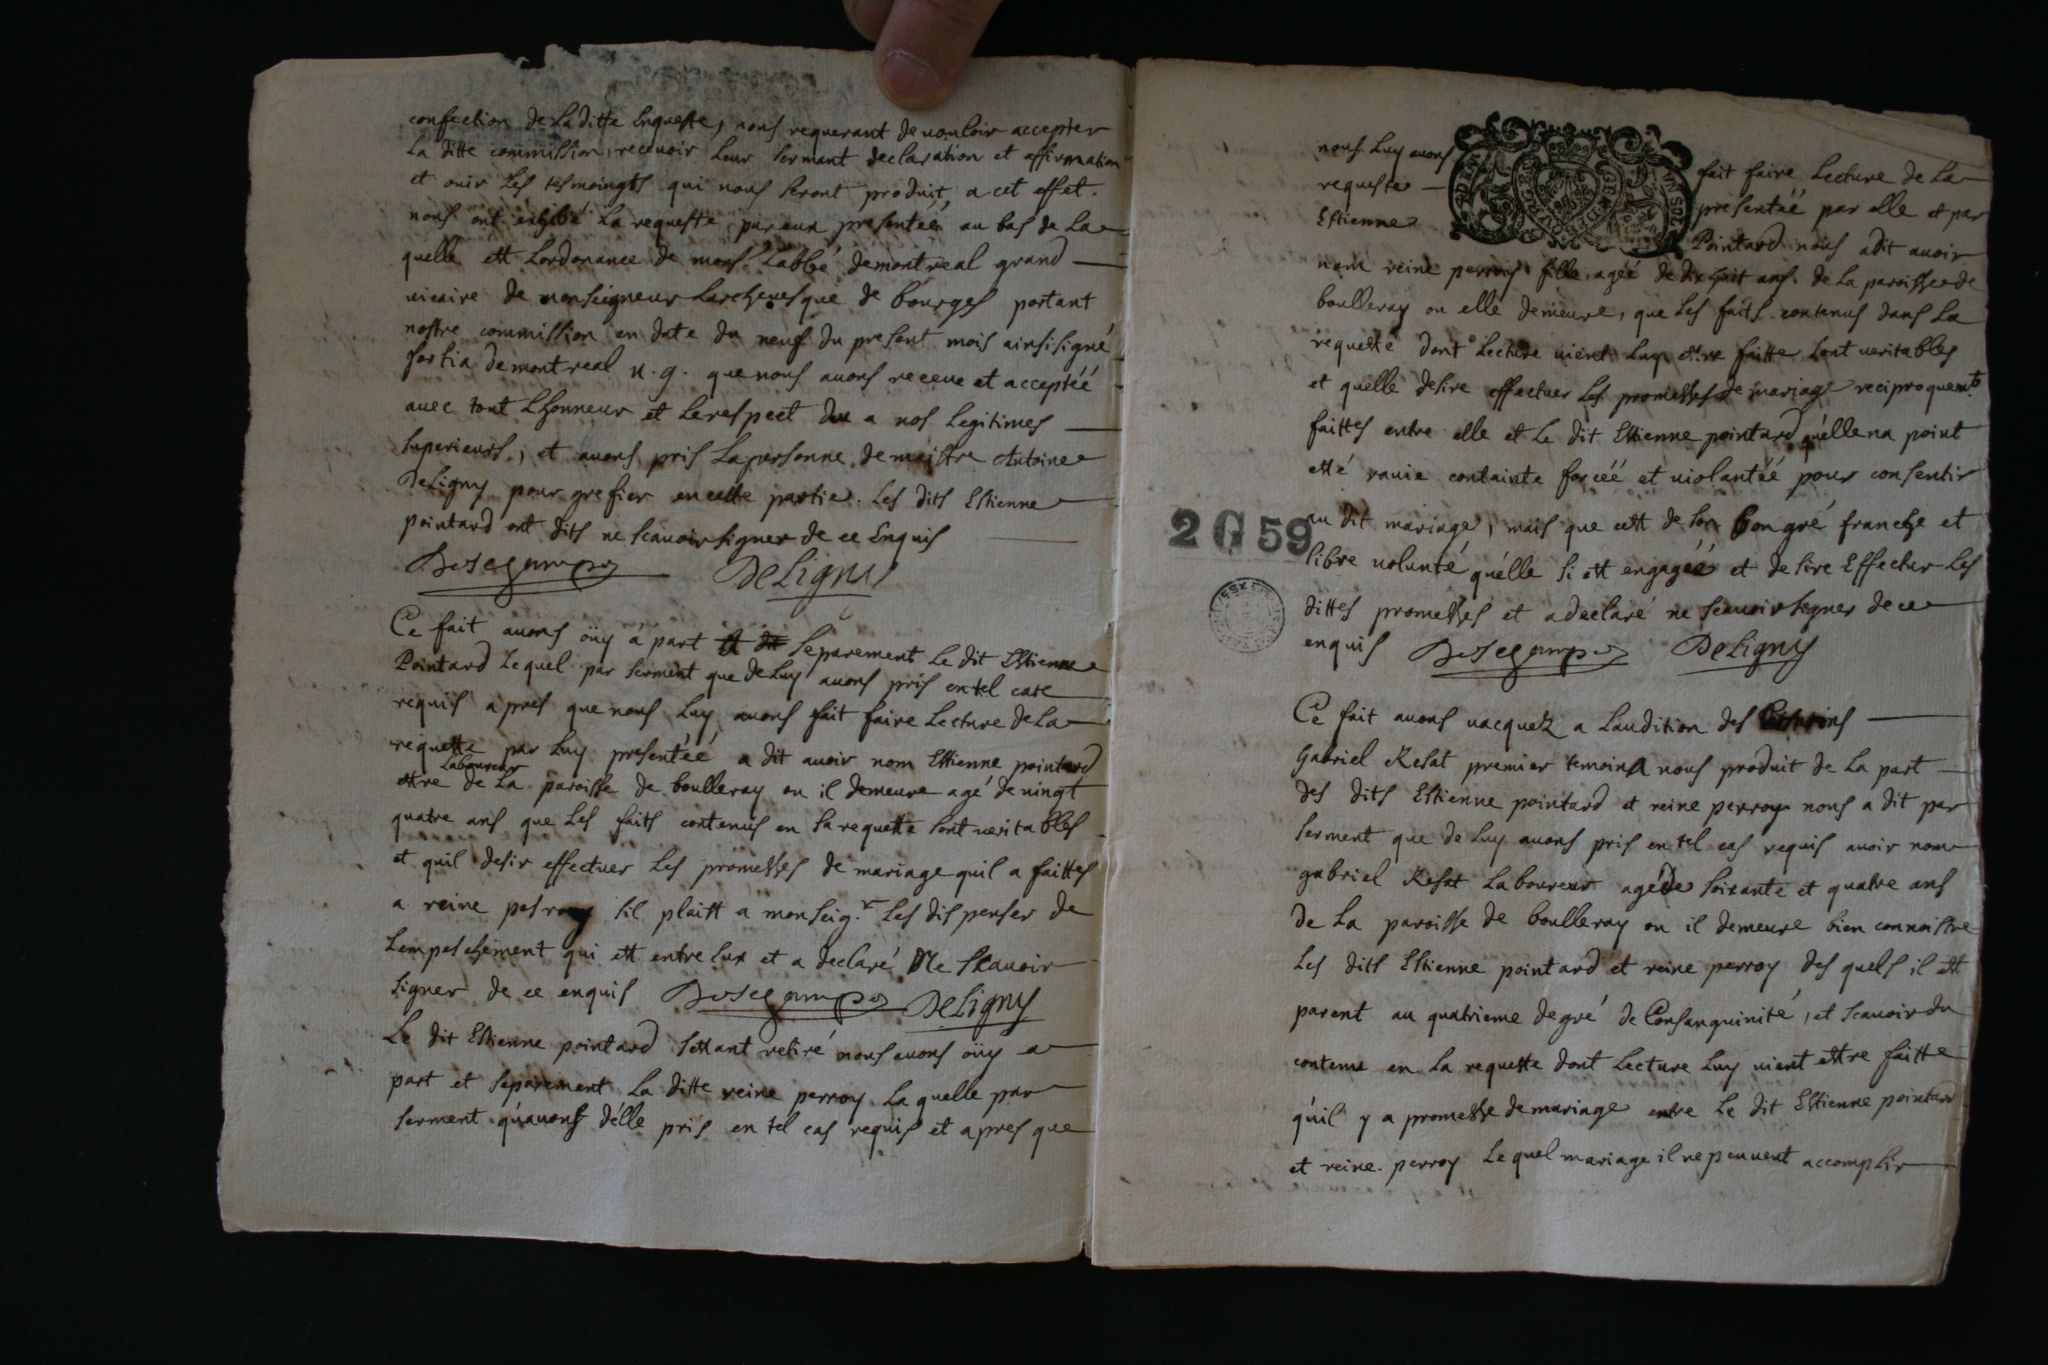 confection de La ditte Enqueste, nous requerant de vouloir accepter
La ditte commission, recevoir Leur serment declaration et affirmation
et ouir Les tesmoingts qui nous seront produit, a cet effet.
nous ont exhibé La requeste par eux presenteé au bas de La
quelle est Lordonance de mons.r Labbé demontreal grand
vicaire de monseigneur Larchevesque de bourges portant
nostre commission en date du neuf du present mois ainsi signé
fortia demontreal v. g. que nous avons receue et acceptéé
avec tout Lhonneur et Le respect deu a nos Legitimes
superieurs, et avons pris La personne de maistre Antoine
DeLigny pour grefier en cette partie. Les dits Estienne
pointard ont dits ne scavoir signer de ce Enquis
DeLigny
Ce fait avons oüy á part separement Le dit Estienne
Pointard Lequel par serment que de Luy avons pris en tel case
requis apres que nous Luy avons fait faire Lecture de La
requette par Luy presentéé a dit avoir nom Estienne pointard
Laboureur
estre de La paroisse de boulleray ou il demeure agé de vingt
quatre ans que Les faits contenus en sa requette sont veritables
et quil desir effectuer Les promesses de mariage quil a faittes
a reine perroy sil plaist a monseig.r Les dispenser de
Lempeschement qui est entre eux et a declaré Ne scavoir
signer de ce enquis DeLigny
Le dit Estienne pointard sestant retiré nous avons oüy a
part et separement La ditte reine perroy La quelle par
serment qu'avons d'elle pris en tel cas requis et apres que
nous Luy avons fait faire Lecture de La
requeste presentéé par elle et par
Estienne Pointard nous a dit avoir
nom reine perrois fille agéé de dix huit ans. de La paroisse de
boulleray ou elle demeure, que Les faits contenus dans La
requette dont Lecture vient Luy estre faitte sont veritables
et quelle desire effectuer Les promesses de mariage reciproquem.t
faittes entre elle et Le dit Estienne pointard quelle na point
esté ravie containte forcéé et violantéé pour consentir
au dit mariage, mais que cest de son bon gré franche et
libre volunté quélle si est engagéé et desire Effectuer Les
dittes promesses et a declaré ne scavoir signer de ce
enquis DeLigny
2 G 59
Ce fait avons vacquez a Laudition des
Gabriel Resat premier temoin nous produit de La part
des dits Estienne pointard et reine perroy nous a dit par
serment que de Luy avons pris en tel cas requis avoir nom
gabriel Resat Laboureur agé de soixante et quatre ans
de La paroisse de boulleray ou il demeure bien connoistre
Les dits Estienne pointard et reine perroy des quels il est
parent au quatrieme degré de Consanguinité, et scavoir du
contenu en La requette dont Lecture Luy vient estre faitte
qu'il y a promesse de mariage entre Le dit Estienne pointard
et reine perroy Le quel mariage il ne peuvent accomplir